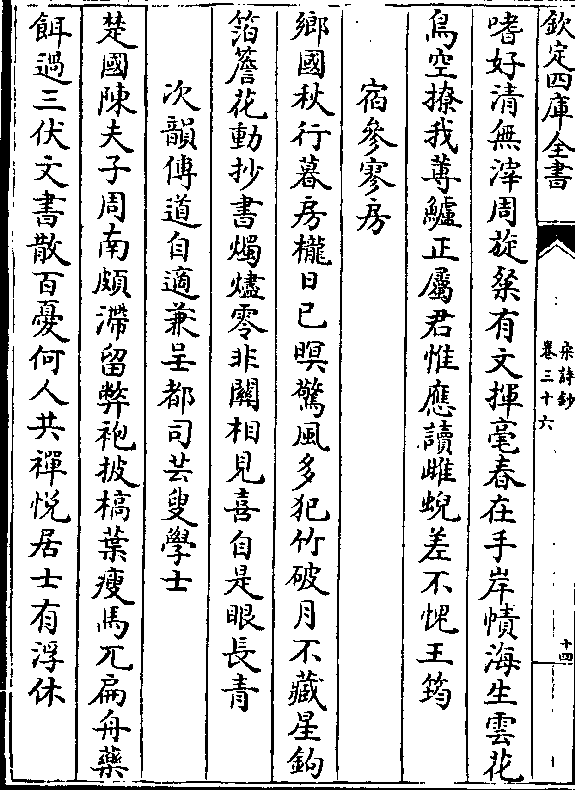 欽定四庫全書
宋詩鈔
卷三十六
十四
嗜好清無滓周旋粲有文揮毫春在手岸幘海生雲花
鳥空撩我蓴鱸正屬君惟應讀雌蜺差不愧王筠
宿參寥房
鄉國秋行暮房櫳日已暝驚風多犯竹破月不藏星鉤
箔簷花動抄書燭燼零非關相見喜自是眼長青
次韻傅道自適兼呈都司芸叟學士
楚國陳夫子周南頗滯留弊袍披槁葉瘦馬兀扁舟藥
餌過三伏文書散百憂何人共禪悅居士有浮休